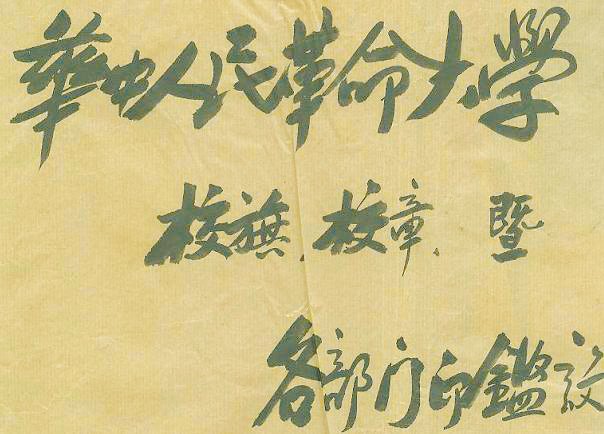 華中人民革命大學
校旗.校章.暨
各部门印鑑